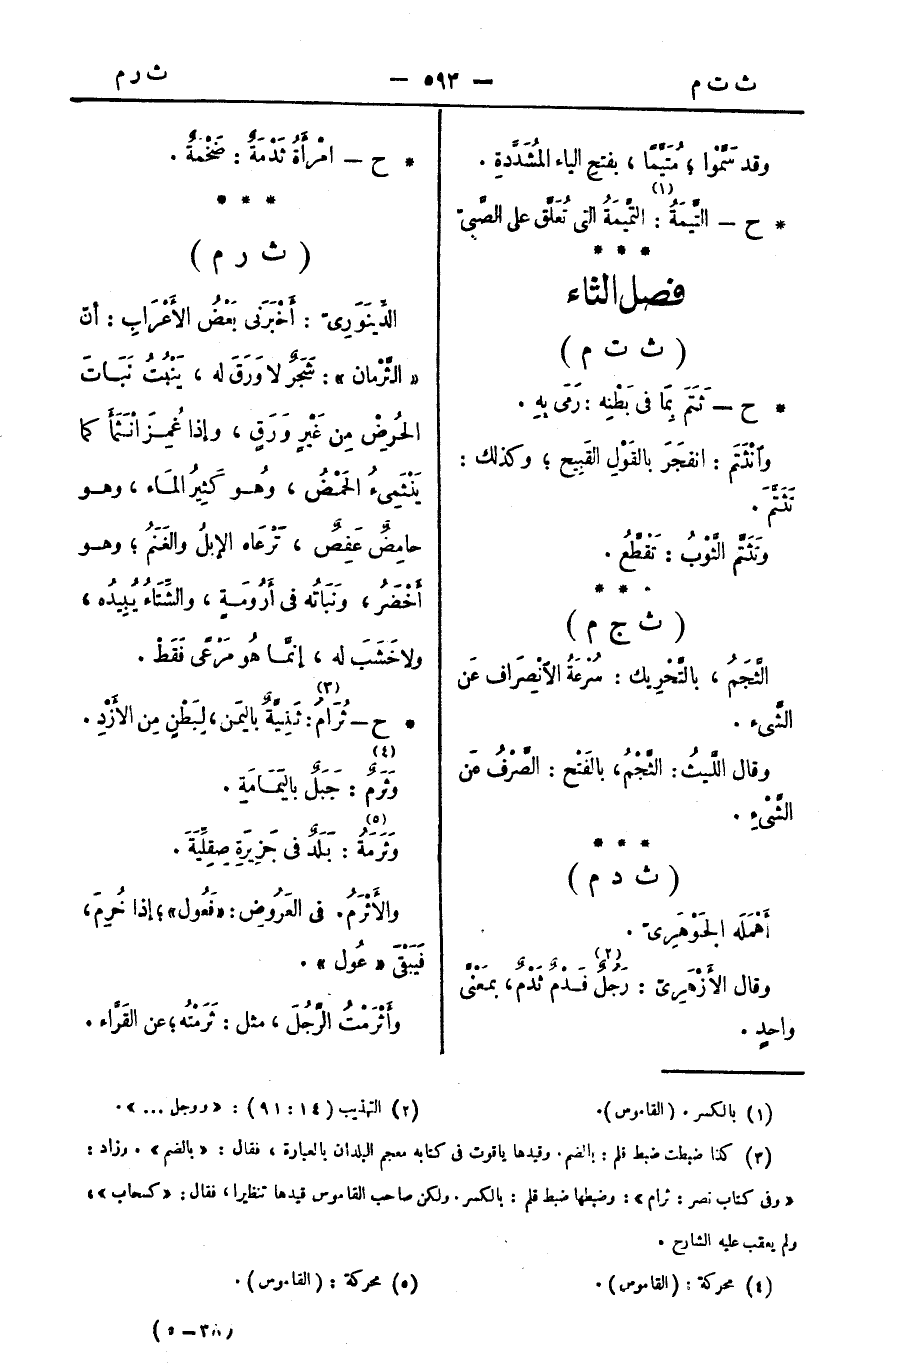 ث ت م
— ٥٩٣ —
ث ر م
وقد سَمَّوْا ؛ مُتَيَّمًا ، بفتح الياء المُشَدَّدةِ .
* ح — التِّيمَةُ (١) : التَّمِيمَةُ التى تُعَلَّق على الصَّبِىّ
* * *
فصل الثاء
( ث ت م )
* ح — ثَتَمَ بِمَا فى بَطْنِه : رَمَى بِهِ .
وٱنْثَتَم : انفجَرَ بالقَوْلِ القَبِيح ؛ وكذلك :
تَثَتَّمَ .
وتَثَتَّم الثَّوْبُ : تَقَطَّعُ .
* * *
( ث ج م )
الثَّجَمُ ، بالتَّحْرِيك : سُرْعَةُ ٱلآنْصِرَاف عَن
الشَّىء .
وقال اللَّيثُ : الثَّجْمُ ، بالفَتْح : الصَّرْفُ عَن
الشَّىْءِ .
* * *
( ث د م )
أَهْمَلَه الجَوْهَرِىّ .
وقال الأَزْهَرِىّ : رَجُلٌ (٢) فَدْمٌ ثَدْمٌ ، بِمَعْنًى
واحدٍ .
* ح — امْرأَةٌ ثَدْمَةٌ : ضَخْمَةٌ .
* * *
( ث ر م )
الدِّينَوَرِىّ : أَخْبَرَنِى بَعْضُ الأَعْرَابِ : أنّ
« الثَّرْمان » : شَجَرٌ لا وَرَقَ له ، يَنْبُتُ نَبَاتَ
الحُرضْ مِن غَيْرِ وَرَقٍ ، وإذا غُمِزَ انْثَمَأَ كما
يَنْثَمِىءُ الحَمْضُ ، وهُو كَثِيرُ المَاء ، وهو
حامِضٌ عَفِصٌ ، تَرْعَاه الإبلُ والغَنَمُ ؛ وهو
أَخْضَرُ ، ونَبَاتُه فى أَرُومَةٍ ، والشِّتَاءُ يُبِيدُه ،
ولا خَشَبَ له ، إنّمَا هُو مَرْعًى فَقَطْ .
* ح — ثُرَامُ (٣) : ثَنِيَّةٌ باليَمن ، لِبَطْنٍ مِن الأَزْدِ .
وثَرَمٌ (٤) : جَبَلٌ بِاليَمَامَةِ .
وثَرَمَةُ (٥) : بَلَدٌ فى جَزِيرَةِ صِقِلِّيَةَ .
والأَثْرَمُ . فى العَرُوضِ : «فَعُول» ؛ إذا خُرِمَ ،
فَيَبْقَى « عُول » .
وأَثْرَمْتُ الرَّجُلَ ، مثل : ثَرَمْتُه ؛ عن الفَرَّاء .
(١) بالكسر . (القاموس).
(٢) التهذيب (١٤ : ٩١) : « ورجل ... ».
(٣) كذا ضبطت ضبط قلم : بالضم . وقيدها ياقوت فى كتابه معجم البلدان بالعبارة ، فقال : « بالضم » . وزاد :
« وفى كتاب نصر : ثرام » : وضبطها ضبط قلم : بالكسر . ولكن صاحب القاموس قيدها تنظيرا ، فقال : « كسحاب » ،
ولم يعقب عليه الشارح .
(٤) محركة : (القاموس) .
(٥) محركة : (القاموس) .
(٣٨ — ٥)